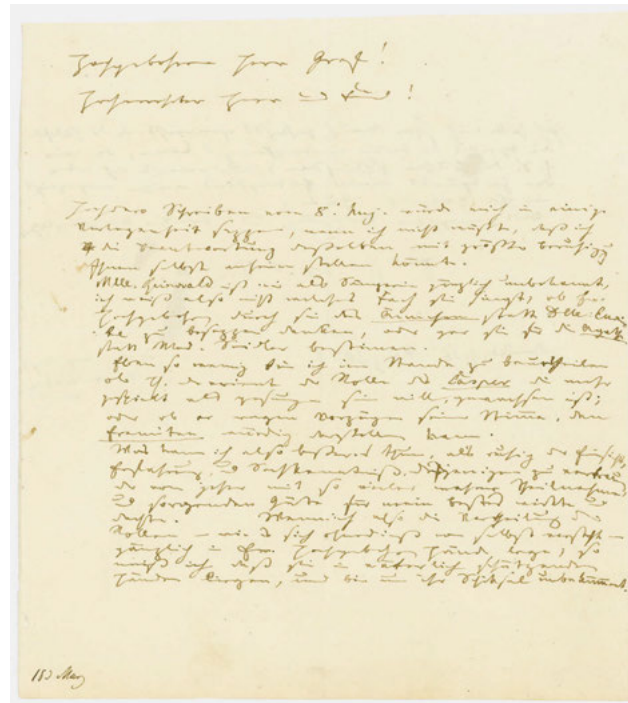 Hochgebohrner Herr Graf!
Hochverehrter Herr und Freund!
Hochdero Schreiben vom 8t Aug. würde mich in einige
Verlegenheit setzen, wenn ich nicht wüßte, daß ich
die Beantwortung desselben mit größter Beruhigung
Ihnen selbst anheim stellen könnte.
Mlle. Reinwald ist mir als Sängerin gänzlich unbekannt,
ich weiß also nicht welches Fach sie singt, ob Ew.
Hochgebohren durch sie das Ännchen statt Dlle: Euni-
ke zu besetzen denken, oder gar sie für die Agathe
statt Mad. Seidler bestimmen.
Eben so wenig bin ich im Stande zu beurtheilen
ob H. Devrient der Rolle des Casper die mehr
gespielt als gesungen sein will, gewachsen ist;
oder ob er wegen Vorzügen seiner Stimme, den
Eremiten würdig darstellen kann.
Was kann ich also besseres thun, als ruhig der Einsicht,
Erfahrung, und Sachkenntniß, desjenigen zu vertrauen
der von jeher mit so vieler wahrer Theilnahme,
und sorgenden Güte für mein bestes wirkte und
dachte. Wenn ich also die Vertheilung der
Rollen — wie es sich ohnedieß von selbst versteht —
gänzlich in Ew. Hochgebohren Hände lege, so
weiß ich daß sie in väterlich schützenden
Händen liegen, und bin um ihr Schiksal unbekümmert.